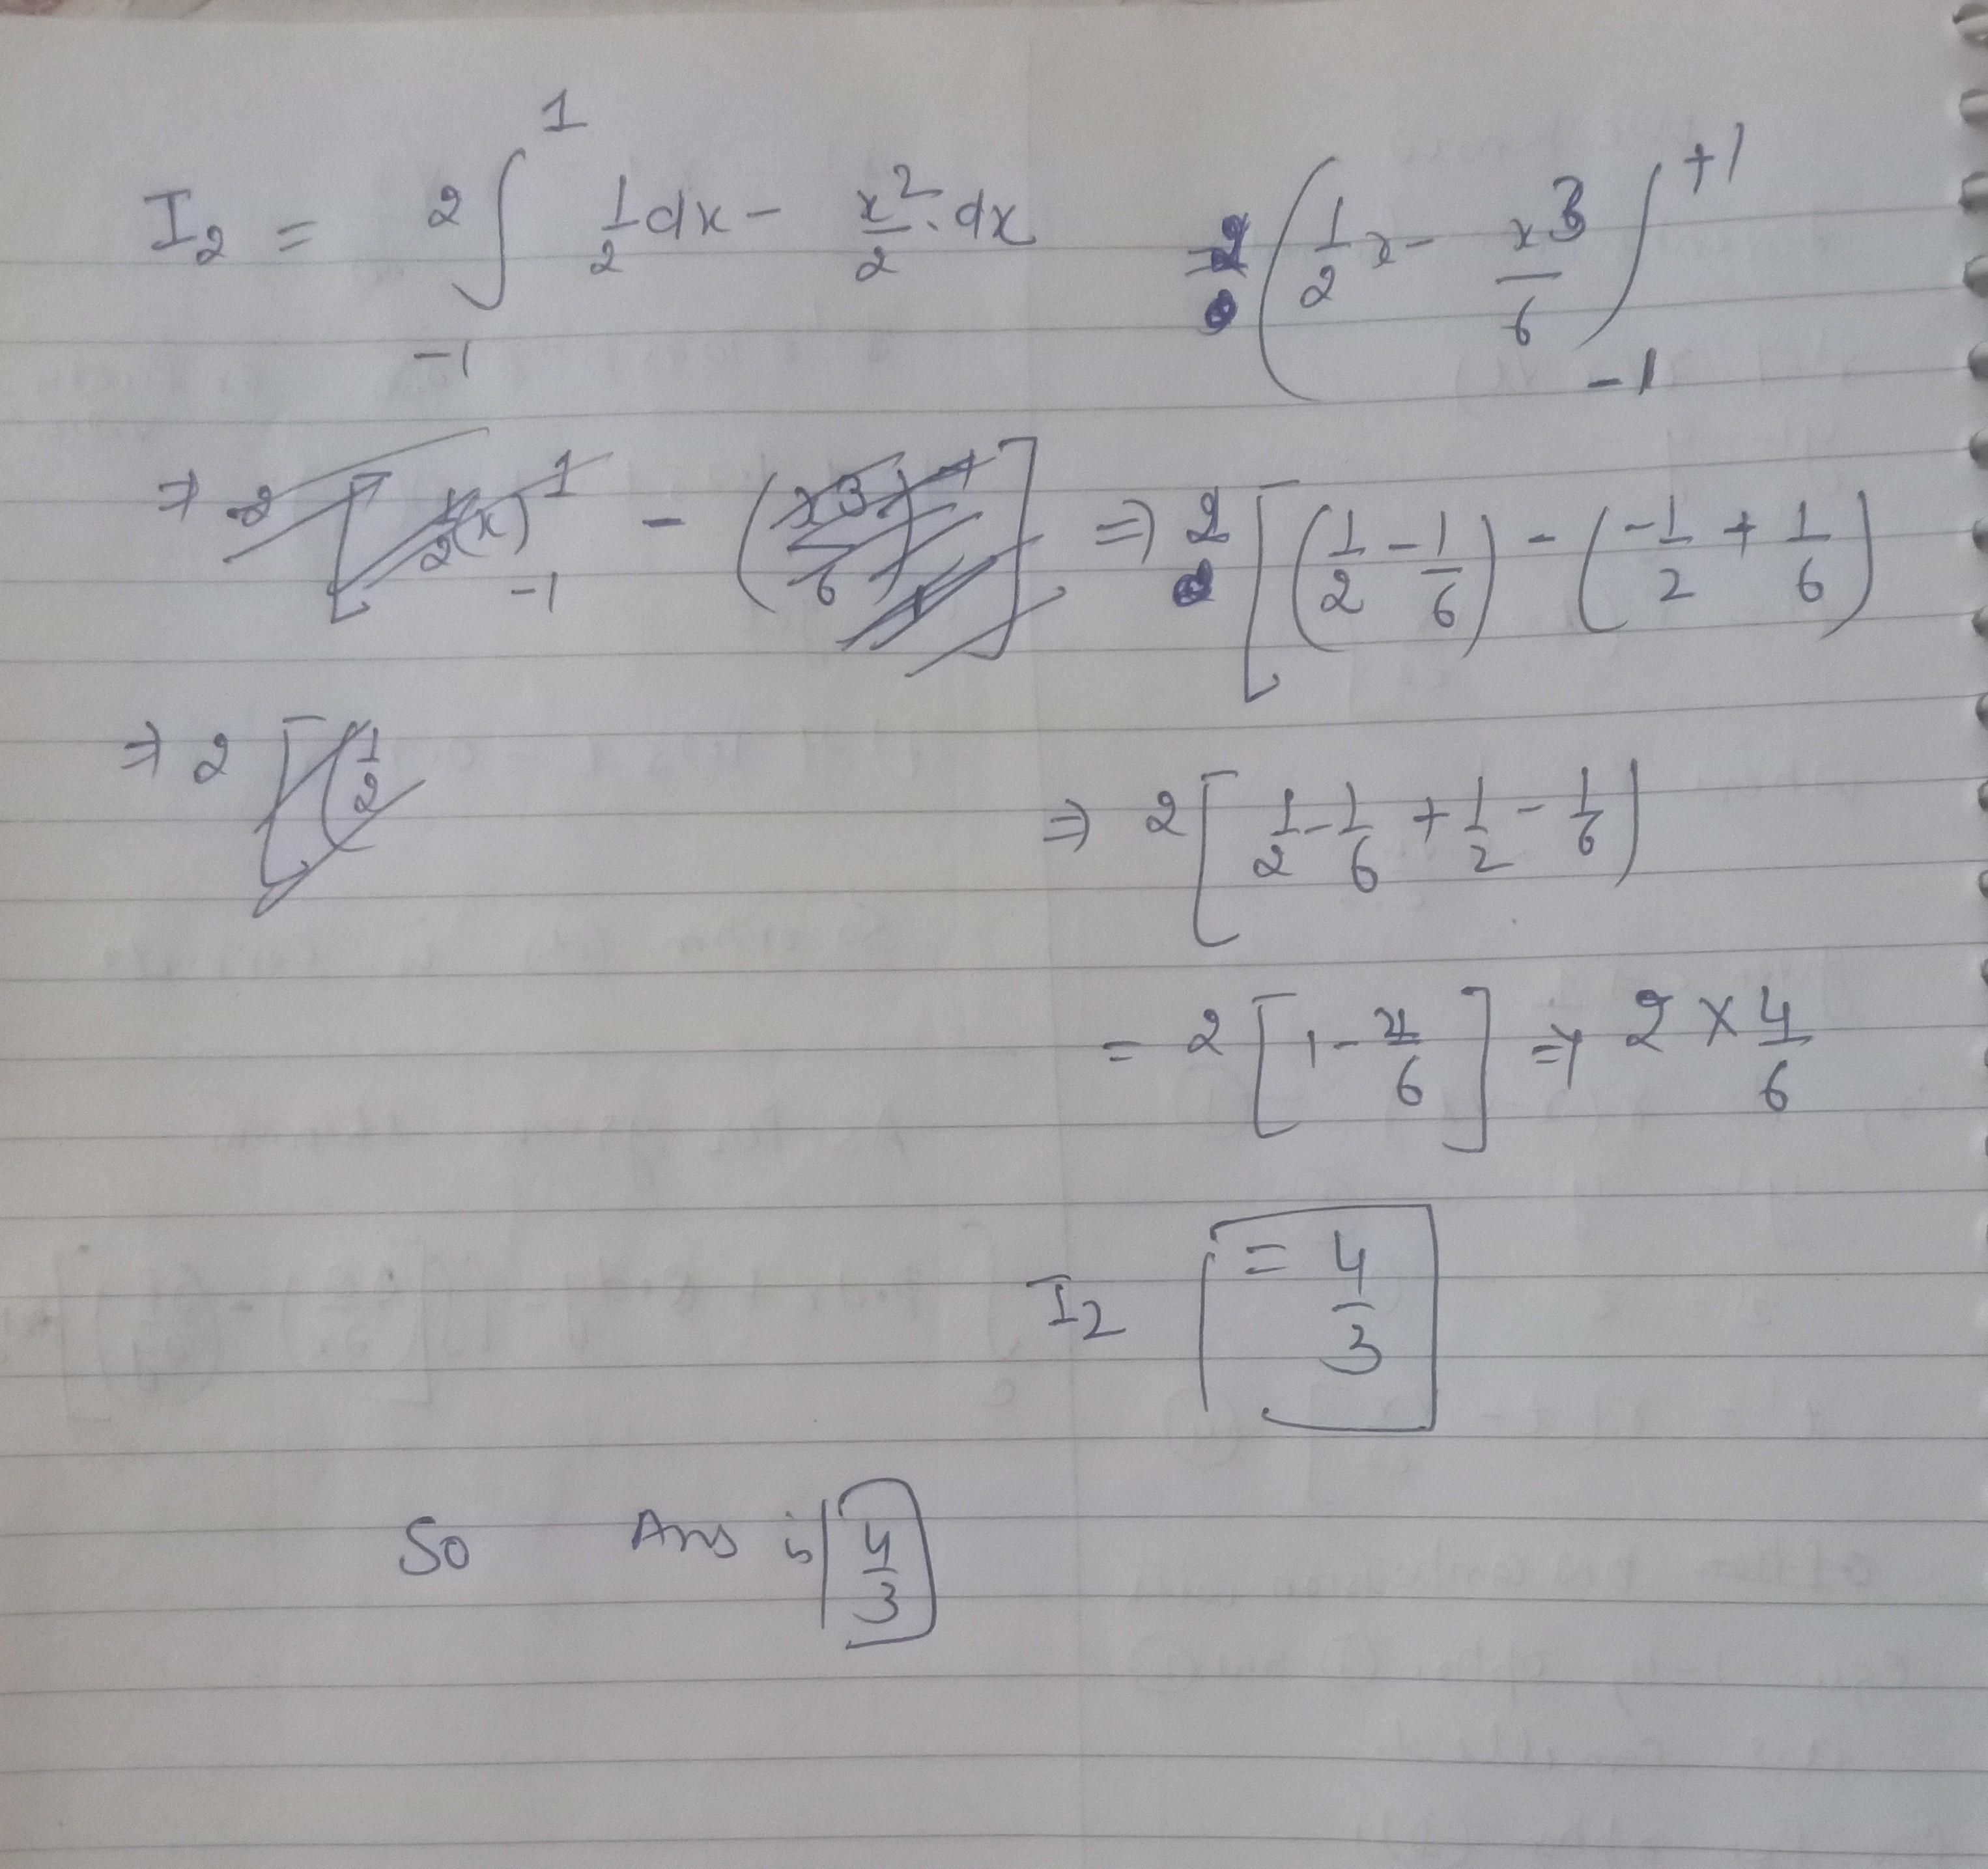 I₂ = 2 ∫₋₁¹ 1/2 dx - x²/2 . dx
⇒ 2 (1/2 x - x³/6)₋₁⁺¹
⇒ 2 [ 1/2 (x)₋₁¹ - (x³/6) ]
⇒ 2 [ (1/2
⇒ 2 [ (1/2 - 1/6) - (-1/2 + 1/6)
⇒ 2 [ 1/2 - 1/6 + 1/2 - 1/6 )
= 2 [ 1 - 2/6 ] ⇒ 2 × 4/6
I₂ = 4/3
So Ans is 4/3